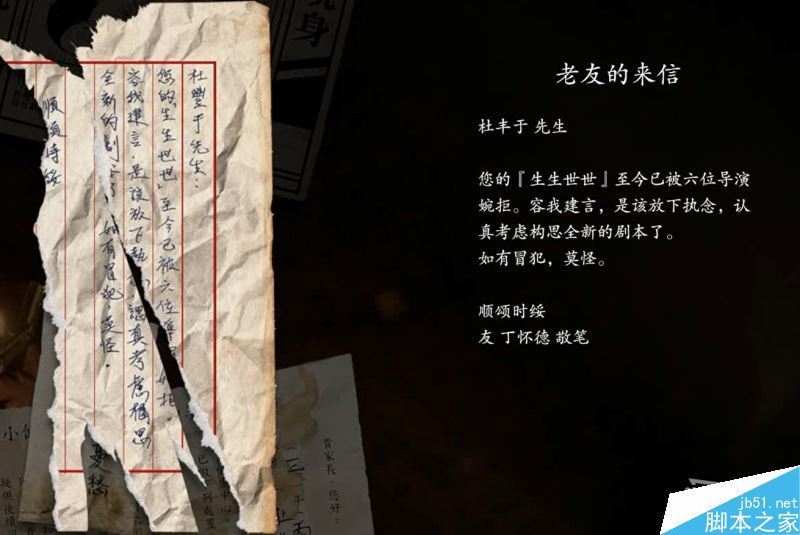 杜豐于 先生：
您的『生生世世』至今已被六位導
容我建言，是該放下執 認真考慮構思
全新的劇 如有冒犯，莫怪。
順頌時綏
憂愁
貴家長，您好：
老友的来信
杜丰于 先生
您的『生生世世』至今已被六位导演
婉拒。容我建言，是该放下执念，认
真考虑构思全新的剧本了。
如有冒犯，莫怪。
顺颂时绥
友 丁怀德 敬笔
jb51.net
脚本之家